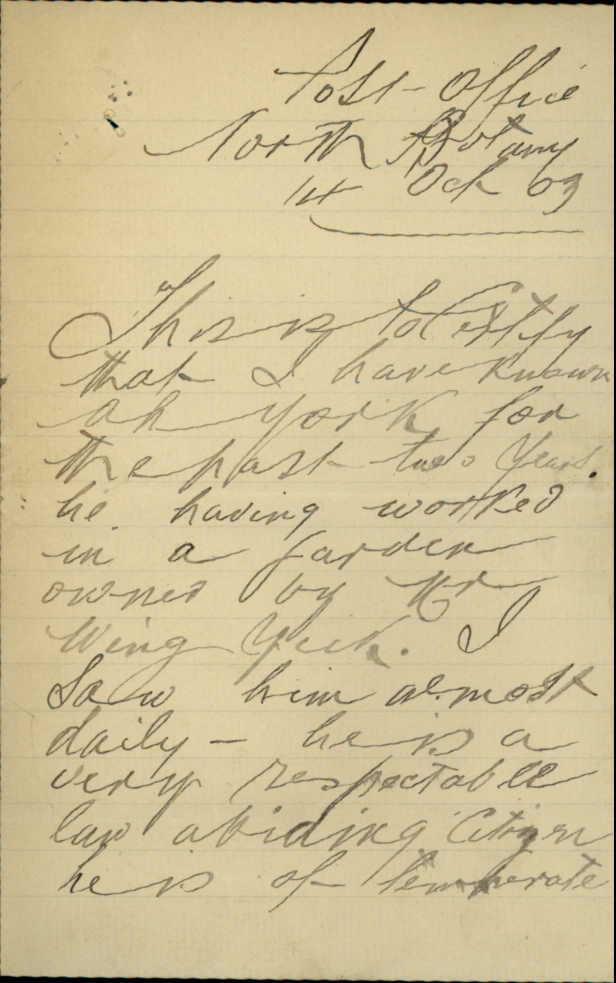 Post-Office
North Botany
14 Oct 03
This is to Certify
that I have known
Ah York for
the past two Years.
he having worked
in a Garden
owned by Mr
Wing Yick. I
Saw him almost
daily - he is a
very respectable
law abiding Citizen
he is of temperate